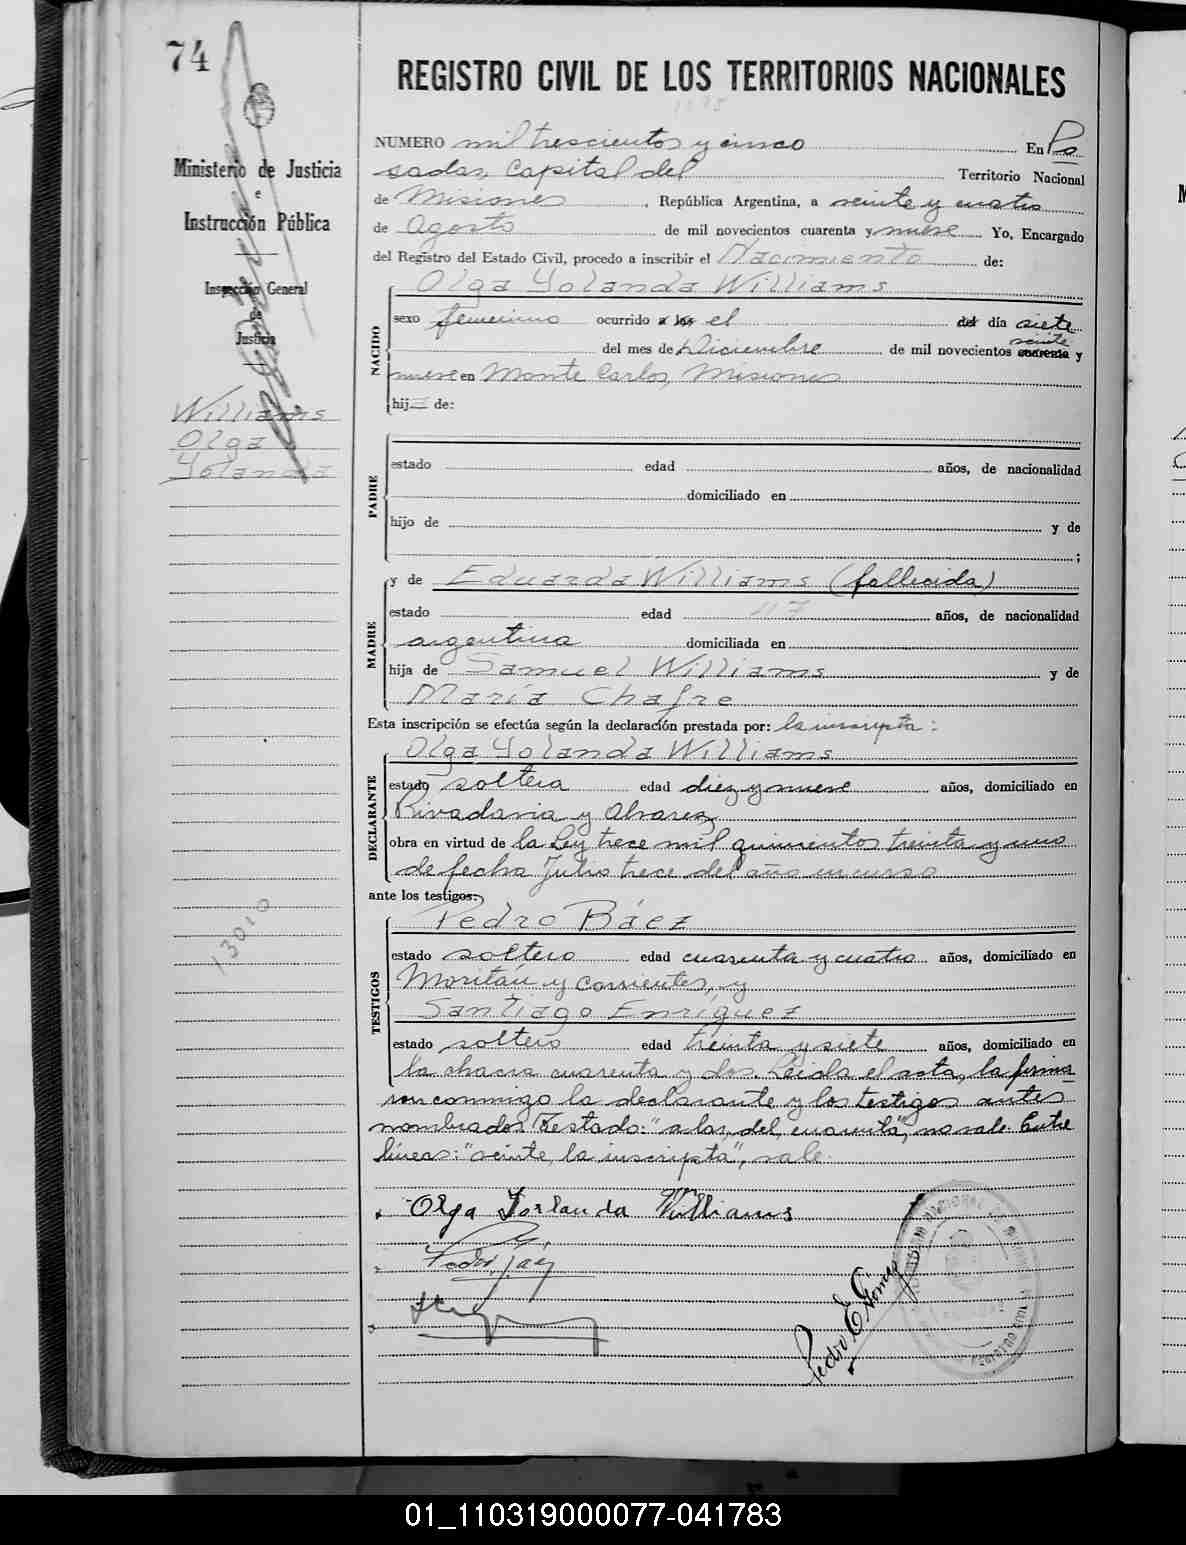 74
REGISTRO CIVIL DE LOS TERRITORIOS NACIONALES
Ministerio de Justicia
e
Instrucción Pública
Inspección General
de
Justicia
Williams
Olga
Yolanda
13010
NUMERO mil trescientos y cinco En Po
sadas, Capital del Territorio Nacional
de Misiones, República Argentina, a veinte y cuatro
de Agosto de mil novecientos cuarenta y nueve Yo, Encargado
del Registro del Estado Civil, procedo a inscribir el Nacimiento de:
NACIDO
Olga Yolanda Williams
sexo femenino ocurrido a las el del día siete
veinte
del mes de Diciembre de mil novecientos cuarenta y
nueve en Monte Carlo, Misiones
hij de:
PADRE
estado edad años, de nacionalidad
domiciliado en
hijo de y de
;
MADRE
y de Eduarda Williams (fallecida)
estado edad años, de nacionalidad
argentina domiciliada en
hija de Samuel Williams y de
María Chafre
Esta inscripción se efectúa según la declaración prestada por: la inscripta:
DECLARANTE
Olga Yolanda Williams
estado soltera edad diez y nueve años, domiciliado en
Rivadavia y Alvarez
obra en virtud de la Ley trece mil quinientos treinta y uno
de fecha Julio trece del año en curso
ante los testigos:
TESTIGOS
Pedro Báez
estado soltero edad cuarenta y cuatro años, domiciliado en
y Corrientes, y
Santiago Enríquez
estado soltero edad treinta y siete años, domiciliado en
la chacra cuarenta y dos. Leída el acta, la firma
ron conmigo la declarante y los testigos antes
nombrados. Testado: "a las, del, cuarenta", no vale. Entre
líneas: "veinte, la inscripta", vale.
Olga Yorlanda Williams
Pedro E. Gomez
01_110319000077-041783